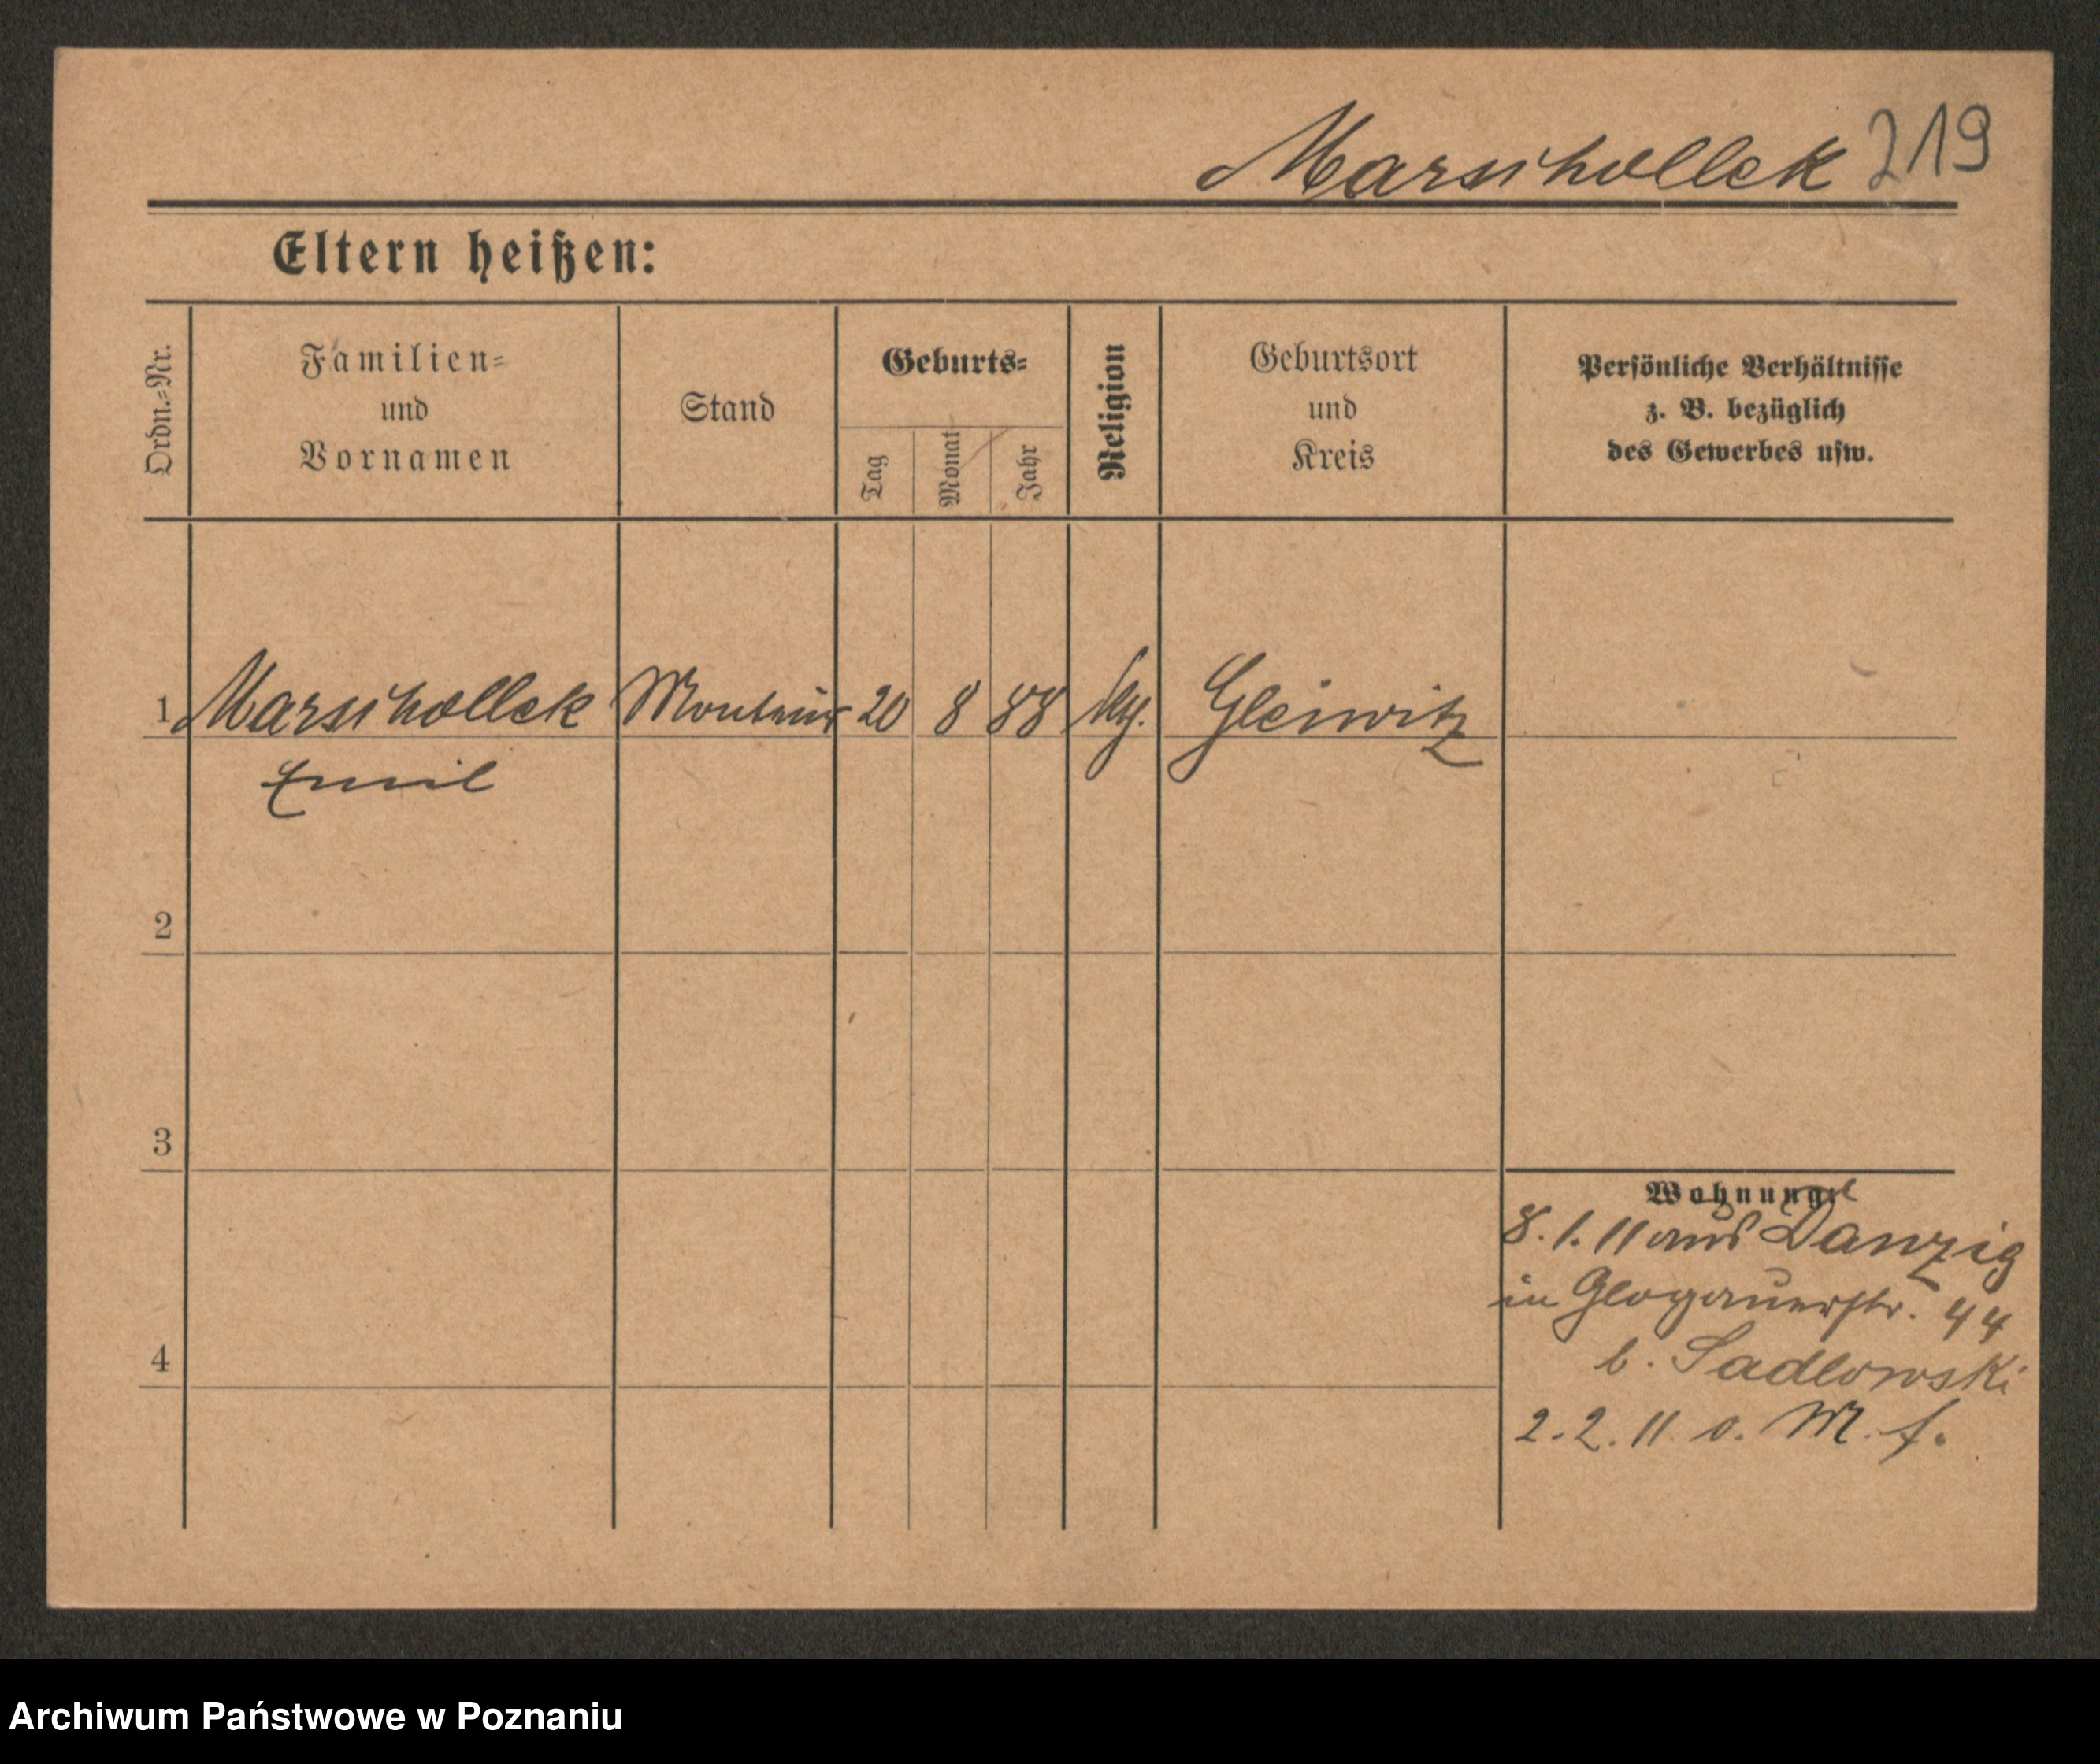 Marschollek 219
Eltern heißen:
Ordn.=Nr.
Familien=
und
Vornamen
Stand
Geburts=
Tag
Monat
Jahr
Religion
Geburtsort
und
Kreis
Persönliche Verhältnisse
z. B. bezüglich
des Gewerbes usw.
1 Marschollek Monteur 20 8 88 Gleiwitz
Emil
2
3
Wohnung
8. 1. 11 aus Danzig
in Glogauerstr. 44
4
b. Sadlowski
2. 2. 11 o. M. f.
Archiwum Państwowe w Poznaniu